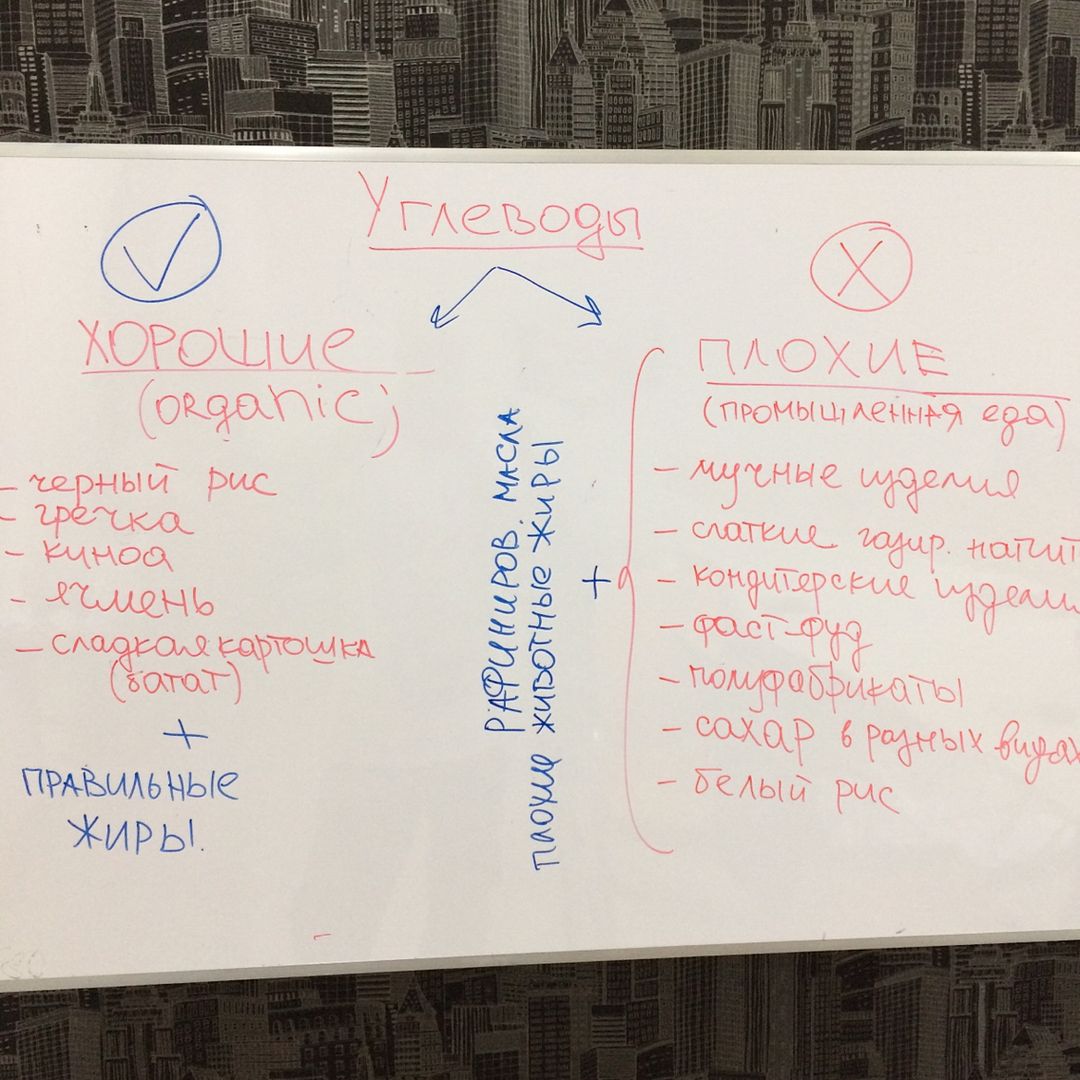 Углеводы
ХОРОШИЕ
(organic)
- черный рис
- гречка
- киноа
- ячмень
- сладкая картошка
(батат)
+
ПРАВИЛЬНЫЕ
ЖИРЫ.
РАФИНИРОВ. МАСЛА
ПЛОХИЕ ЖИВОТНЫЕ ЖИРЫ
+
ПЛОХИЕ
(промышленная еда)
- мучные изделия
- слаткие газир. напит
- кондитерские издели
- фаст-фуд
- полуфабрикаты
- сахар в разных видах
- белый рис